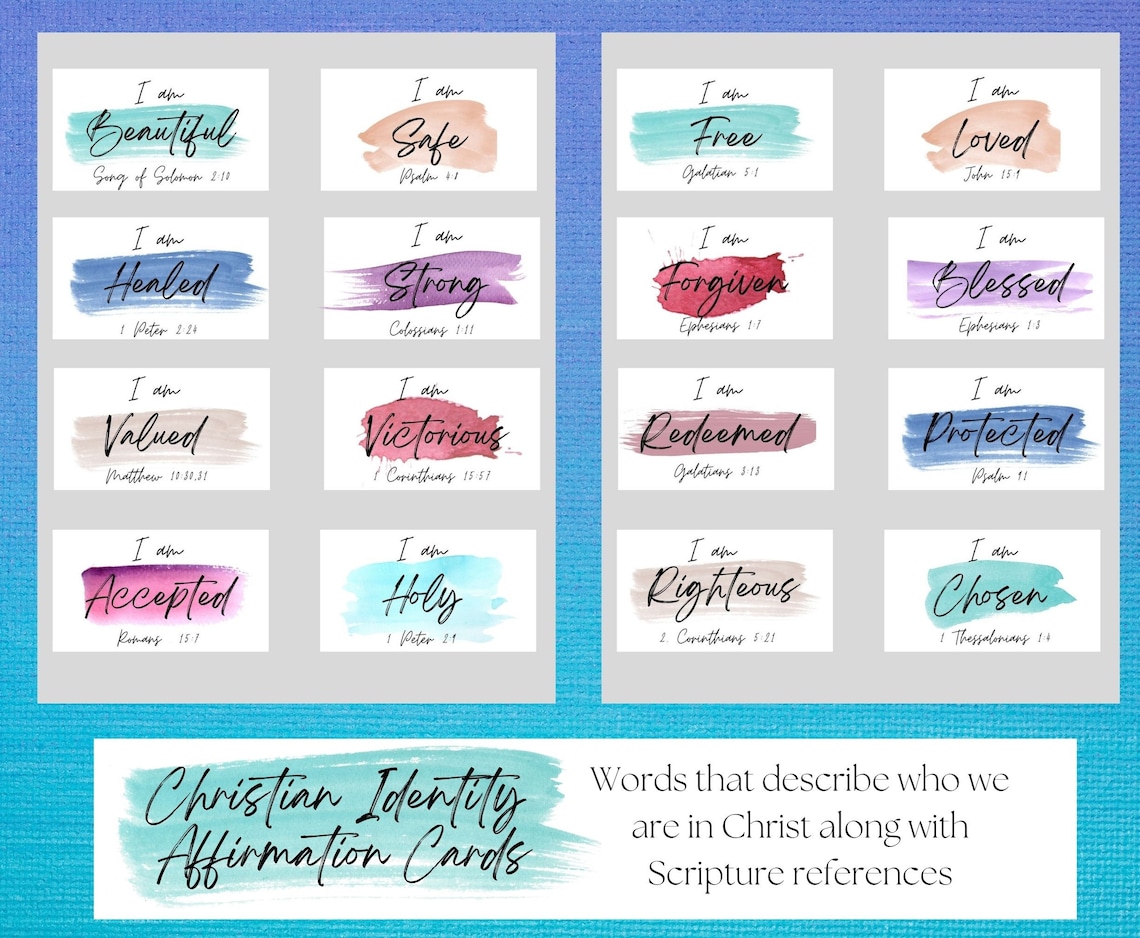 I am
Beautiful
Song of Solomon 2:10
I am
Safe
Psalm 4:8
I am
Healed
1 Peter 2:24
I am
Strong
Colossians 1:11
I am
Valued
Matthew 10:30,31
I am
Victorious
1 Corinthians 15:57
I am
Accepted
Romans 15:7
I am
Holy
1 Peter 2:9
I am
Free
Galatian 5:1
I am
Loved
John 15:9
I am
Forgiven
Ephesians 1:7
I am
Blessed
Ephesians 1:3
I am
Redeemed
Galatians 3:13
I am
Protected
Psalm 91
I am
Righteous
2. Corinthians 5:21
I am
Chosen
1 Thessalonians 1:4
Christian Identity
Affirmation Cards
Words that describe who we
are in Christ along with
Scripture references